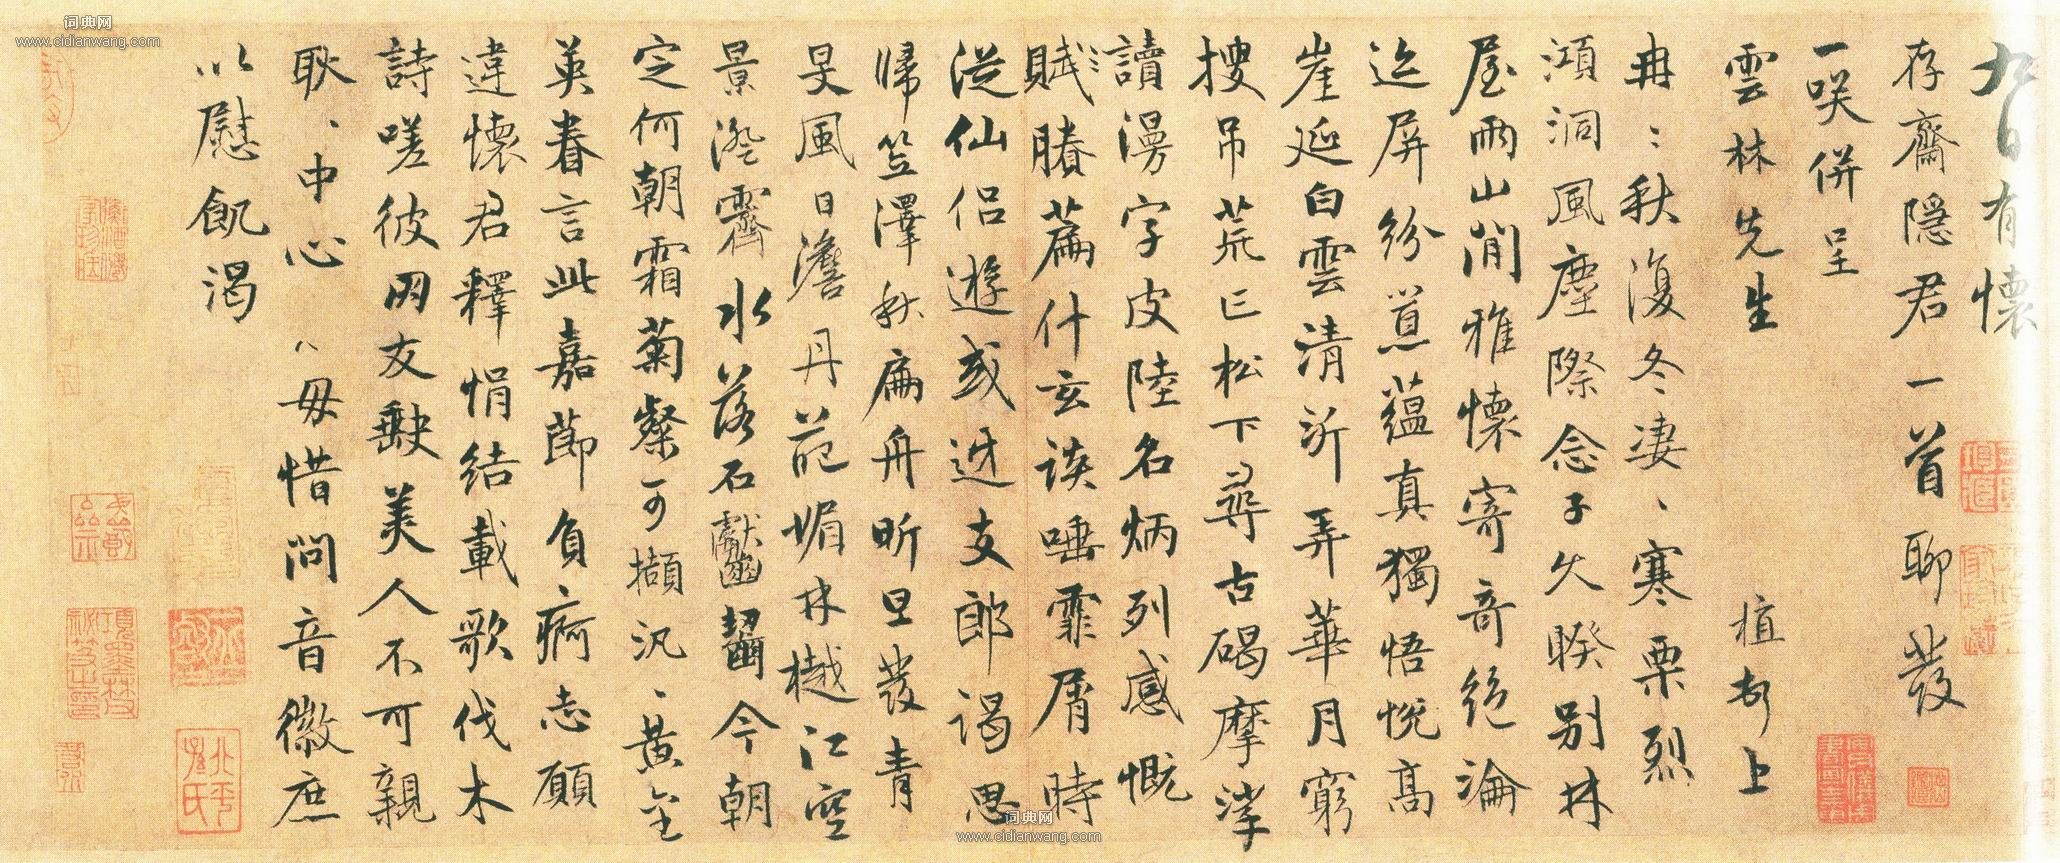 九日有懷
存齋隱君一首聊發
一咲併呈
雲林先生 植頓上
冉〻秋復冬凄〻寒栗烈
澒洞風塵際念子久睽别林
屋兩山間雅懷寄奇絶淪
迄屏紛蕰真獨悟悅高
崖延白雲清沂弄華月窮
搜吊荒丘松下尋古碣摩挲
讀漫字皮陸名炳列感慨
賦〻勝篇什玄談唾霏屑時
從仙侣遊或迓支郎謁思
歸笠澤秋扁舟昕旦發青
旻風日澹丹葩媚林樾江空
景澄霽水落石齾齧今朝
定何朝霜菊粲可擷汎〻黄金
英眷言此嘉節負痾志願
違懷君釋悁結載歌伐木
詩嗟彼朋友缺美人不可親
耿〻中心〻毋惜問音徽庶
以慰飢渴
北平孫氏
词典网
www.cidianwang.com
词典网
www.cidianwang.com